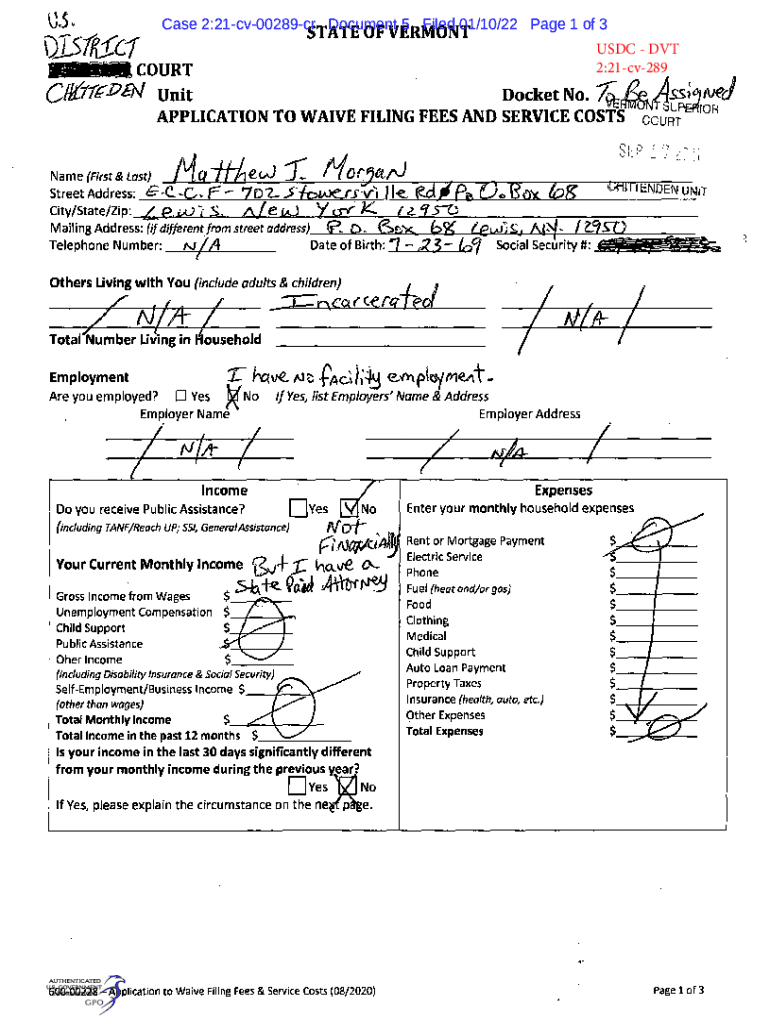 Case 2:21-cv-00289-cr Document 5 Filed 01/10/22 Page 1 of 3
U.S. STATE OF VERMONT
DISTRICT
USDC - DVT
COURT
2:21-cv-289
CHITTEDEN Unit Docket No. To Be Assigned
VERMONT SUPERIOR
APPLICATION TO WAIVE FILING FEES AND SERVICE COSTS COURT
SEP 17
Name (First & Last) Matthew J. Morgan
CHITTENDEN UNIT
Street Address: E.C.C.F - 702 Stowersville Rd P.O. Box 68
City/State/Zip: Lewis, New York 12950
Mailing Address: (if different from street address) P.O. Box 68 Lewis, NY. 12950
Telephone Number: N/A Date of Birth: 7-23-69 Social Security #:
Others Living with You (include adults & children)
Incarcerated
N/A N/A
Total Number Living in Household
Employment I have no facility employment.
Are you employed? Yes No If Yes, list Employers' Name & Address
Employer Name Employer Address
N/A N/A
Income Expenses
Do you receive Public Assistance? Yes No Enter your monthly household expenses
(including TANF/Reach UP; SSI, General Assistance) Not
Financially
Rent or Mortgage Payment $
Electric Service $
Your Current Monthly Income But I have a
Phone $
State Paid Attorney
Fuel (heat and/or gas) $
Gross Income from Wages $
Food $
Unemployment Compensation $
Clothing $
Child Support $
Medical $
Public Assistance $
Child Support $
Oher Income $
Auto Loan Payment $
(including Disability Insurance & Social Security)
Property Taxes $
Self-Employment/Business Income $
Insurance (health, auto, etc.) $
(other than wages)
Other Expenses $
Total Monthly Income $
Total Expenses $
Total Income in the past 12 months $
Is your income in the last 30 days significantly different
from your monthly income during the previous year?
Yes No
If Yes, please explain the circumstance on the next page.
AUTHENTICATED
U.S. GOVERNMENT
600-00228 - Application to Waive Filing Fees & Service Costs (08/2020) Page 1 of 3
GPO